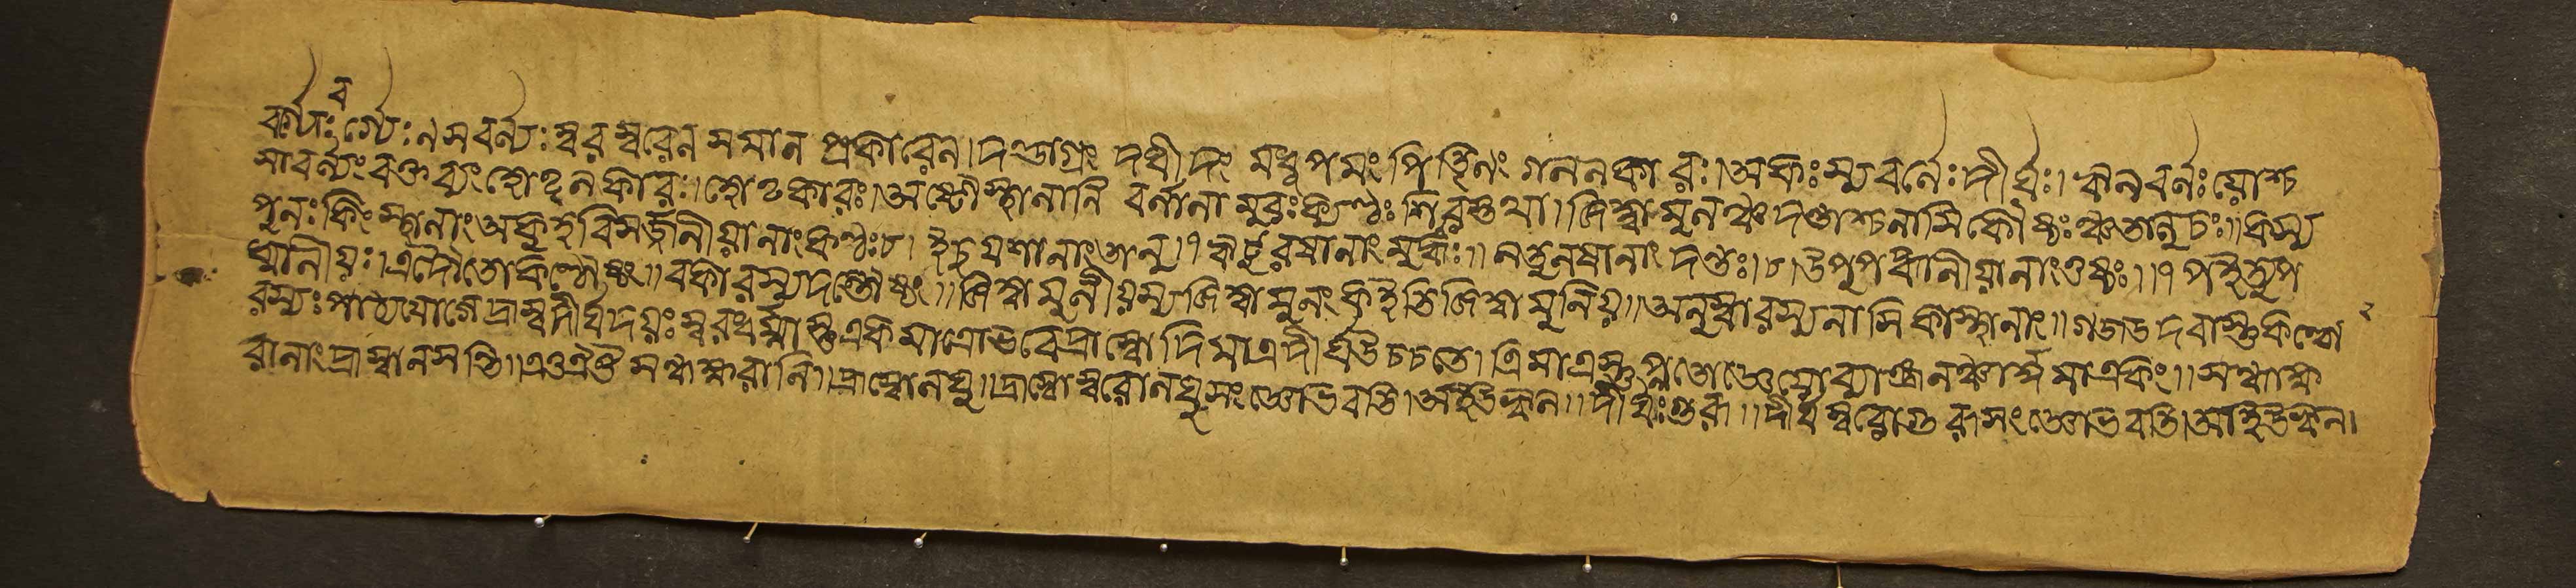 ব
বর্ণ্যেঃ র্গ্যেঃ ৷ সবর্ন্যঃ স্বর স্বরেন সমান প্রকারেন। দণ্ডাগ্রং দধীদং মধুপমং পিতৃনং গননকারঃ। অকিঃ স্য বর্নেঃ দীর্ঘঃ। ঋন বর্নঃ য়োশ্চ
সাবর্ন্যং বক্তব্যং হোতৃনকারঃ। হোতৃকারঃ। অষ্টৌ স্থানানি বর্নানা মুরঃ কণ্ঠঃ শিরস্তথা। জিহ্বামুনঞ্চ দন্তাশ্চ নাসিকৌষ্ঠঃ ঞ্চ তানুচঃ॥ কিস্য
পুনঃ কিং স্থানাং অকুহ বিসর্জ্জনীয়ানাং কণ্ঠঃ৮। ইচু য়শানাং তানু। ৭ ঋটু রষানাং মুর্দ্ধাঃ॥ নতুনষানাং দন্তঃ। ৮। উপুপধ্মানীয়ানাং ওষ্ঠঃ॥ ৭ পহুত্যুপ
ধ্মানীয়ঃ। এদৈতো কণ্ঠৌষ্ঠং॥ বকারস্য দন্তৌষ্ঠং॥ জিহ্বামুনীয়স্য জিহ্বামুনং কহুতি জিহ্বামুনিয়॥ অনুস্বারস্য নাসিকাস্থানাং॥ গজডদবাস্তু কণ্ঠো ২
রস্যঃ পাঠয়োগে হ্রাস্ব দীর্ঘদয়ঃ স্বরধর্ম্মাস্তু একমাত্রো ভবে হ্রাস্বো দিমাত্র দীর্ঘ উচচতে। ত্রিমাত্রস্তু প্লুতো জ্ঞেয়ো ব্যাঞ্জনঞ্চার্দ্ধমাত্রকিং॥ সন্ধ্যাক্ষ
রানাং হ্রাস্বা নসন্তি॥ এওঐঔ সন্ধ্যাক্ষরানি॥ হ্রাস্বোনঘু॥ হ্রাস্বো স্বরো নঘুসংজ্ঞো ভবতি। অইউঋন॥ দীর্ঘঃ গুরূ॥ দীর্ঘস্বরো গুরূসংজ্ঞো ভবতি। আইউঋন।